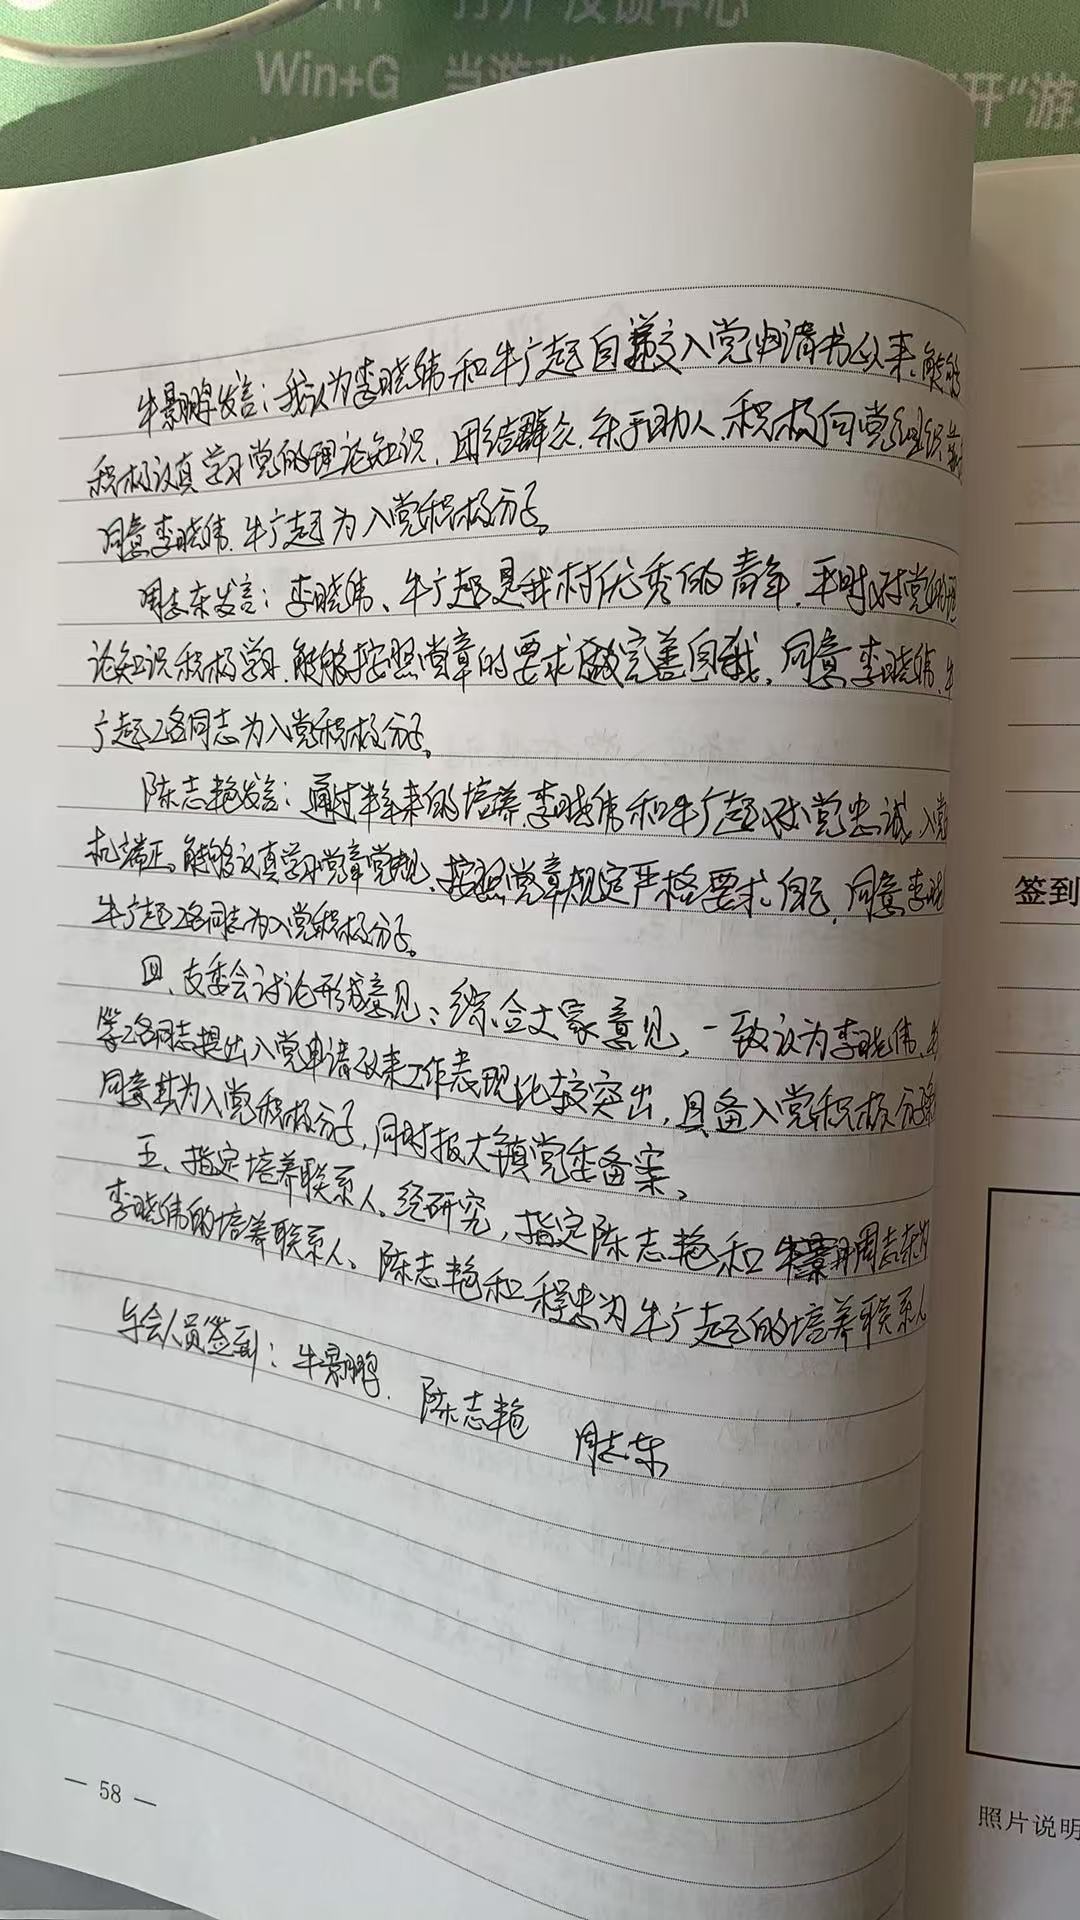 Win+G 当游戏
开"游
牛景鹏发言：我认为李晓伟和牛广起自递交入党申请书以来，能够
积极认真学习党的理论知识，团结群众，乐于助人，积极向党组织靠
同意李晓伟、牛广起为入党积极分子。
周志东发言：李晓伟、牛广起是我村优秀的青年，平时对党的理
论知识积极学习，能够按照党章的要求做完善自我，同意李晓伟、牛
广起2名同志为入党积极分子。
陈志艳发言：通过半年来的培养，李晓伟和牛广起对党忠诚，入党
机端正。能够认真学习党章党规，按照党章规定严格要求自己，同意李晓
牛广起2名同志为入党积极分子。
四、支委会讨论形成意见：综合大家意见，一致认为李晓伟、牛
等2名同志提出入党申请以来工作表现比较突出，具备入党积极分子
同意其为入党积极分子，同时报大镇党委备案。
五、指定培养联系人。经研究，指定陈志艳和周志东为
李晓伟的培养联系人。陈志艳和程忠为牛广起的培养联系人
与会人员签到：牛景鹏 陈志艳 周志东
— 58 —
签到
照片说明